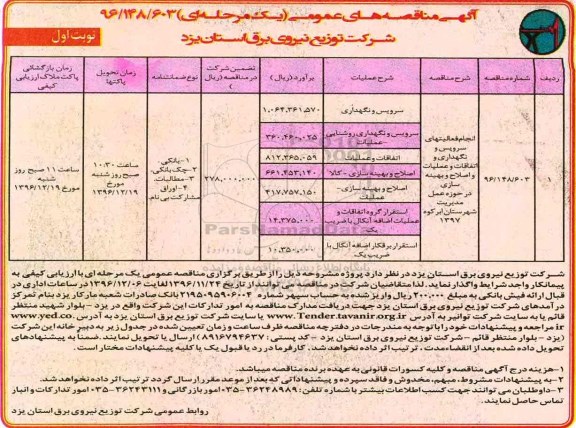 آگهی مناقصه های عمومی (یک مرحله ای) ۹۶/۱۴۸/۶۰۳
نوبت اول
شرکت توزیع نیروی برق استان یزد
ردیف
شماره مناقصه
شرح مناقصه
شرح عملیات
برآورد (ریال)
تضمین شرکت در مناقصه (ریال)
نوع ضمانتنامه
زمان تحویل پاکتها
زمان بازگشائی پاکت ملاک ارزیابی کیفی
۱
۹۶/۱۴۸/۶۰۳
انجام فعالیتهای
سرویس و
نگهداری و
اتفاقات و عملیات
و اصلاح و بهینه
سازی
در حوزه عمل
مدیریت
شهرستان ابرکوه
۱۳۹۷
سرویس و نگهداری
۱.۰۶۴.۳۶۱.۵۷۰
سرویس و نگهداری روشنایی - عملیات
۳۶۰.۴۶۰.۰۲۵
اتفاقات و عملیات
۸۱۲.۳۶۵.۰۵۹
اصلاح و بهینه سازی - کالا
۶۶۱.۴۵۳.۱۴۰
اصلاح و بهینه سازی - عملیات
۴۱۷.۷۵۷.۱۵۰
استقرار گروه اتفاقات و عملیات اضافه آنکال با ضریب یک
۱۴.۳۷۵.۰۰۰
استقرار برقکار اضافه آنکال با ضریب یک
۱۰.۳۵۰.۰۰۰
۲۷۸,۰۰۰,۰۰۰
۱-بانکی
۲-چک بانکی
۳-مطالبات
۴-اوراق
مشارکت بی نام
ساعت ۱۰:۳۰
صبح روز شنبه
مورخ
۱۳۹۶/۱۲/۱۹
ساعت ۱۱ صبح روز
شنبه
مورخ ۱۳۹۶/۱۲/۱۹
ParsNamadData
شرکت توزیع نیروی برق استان یزد در نظر دارد پروژه مشروحه ذیل را از طریق برگزاری مناقصه عمومی یک مرحله ای با ارزیابی کیفی به
پیمانکار واجد شرایط واگذار نماید. لذا متقاضیان شرکت در مناقصه می توانند از تاریخ ۱۳۹۶/۱۱/۲۴ لغایت ۱۳۹۶/۱۲/۰۶ در ساعات اداری در
قبال ارائه فیش بانکی به مبلغ ۲۰۰,۰۰۰ ریال واریز شده به حساب سپهر شماره ۲۱۹۵۰۹۵۹۰۶۰۰۴ بانک صادرات شعبه مارکار یزد بنام تمرکز
درآمدهای شرکت توزیع برق استان یزد جهت دریافت مدارک مناقصه به امور تدارکات این شرکت واقع در یزد - بلوار شهید منتظر
قائم یا به سایت شرکت توانیر به آدرس www.Tender.tavanir.org.ir یا سایت شرکت توزیع برق استان یزد به آدرس www.yed.co.
ir مراجعه و پیشنهادات خود را با توجه به مندرجات در دفترچه مناقصه ظرف ساعت و زمان تعیین شده در جدول زیر به دبیر خانه این شرکت
(یزد - بلوار منتظر قائم - شرکت توزیع نیروی برق استان یزد - کد پستی: ۸۹۱۶۷۹۴۶۳۷) ارسال یا تحویل نمایند. ضمناً به پیشنهادهای
تحویل داده شده بعد از انقضاء مدت، ترتیب اثر داده نخواهد شد. کارفرما در رد یا قبول یک یا کلیه پیشنهادات مختار است.
۱-هزینه درج آگهی مناقصه و کلیه کسورات قانونی به عهده برنده مناقصه میباشد.
۲-به پیشنهادات مشروط، مبهم، مخدوش و فاقد سپرده و پیشنهاداتی که بعد از موعد مقرر ارسال گردد ترتیب اثر داده نخواهد شد.
۳-داوطلبان می توانند جهت کسب اطلاعات بیشتر با شماره تلفن: ۳۶۲۴۸۹۸۹-۰۳۵ امور بازرگانی و ۳۶۲۴۳۱۱۱-۰۳۵ امور تدارکات و انبار
تماس حاصل نمایند.
روابط عمومی شرکت توزیع نیروی برق استان یزد